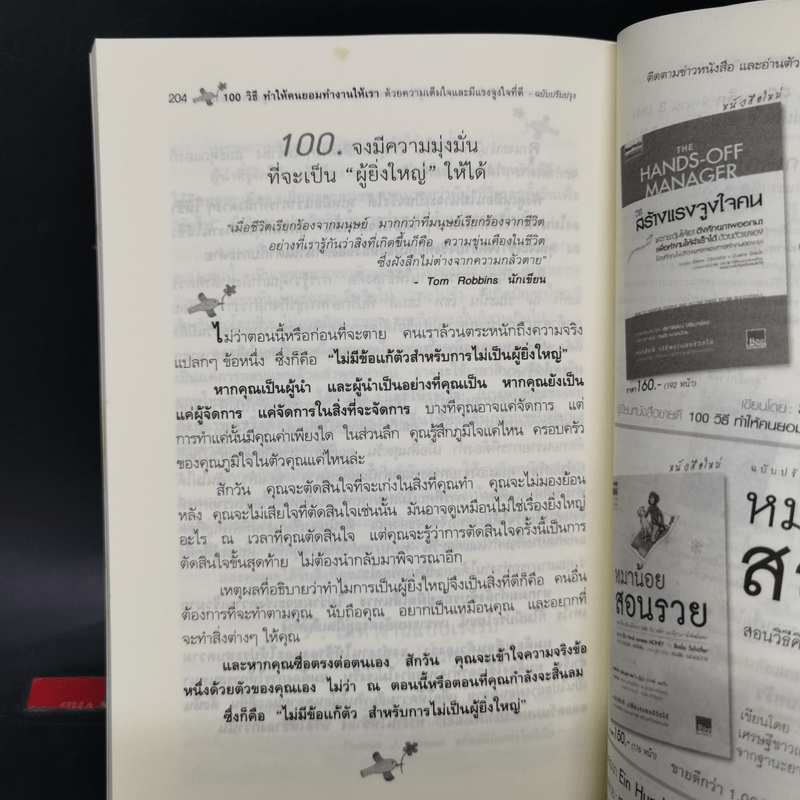 204
100 วิธี ทำให้คนยอมทำงานให้เรา ด้วยความเต็มใจและมีแรงจูงใจที่ดี - ฉบับปรับปรุง
100. จงมีความมุ่งมั่น
ที่จะเป็น “ผู้ยิ่งใหญ่” ให้ได้
"เมื่อชีวิตเรียกร้องจากมนุษย์ มากกว่าที่มนุษย์เรียกร้องจากชีวิต
อย่างที่เรารู้กันว่าสิ่งที่เกิดขึ้นก็คือ ความขุ่นเคืองในชีวิต
ซึ่งฝังลึกไม่ต่างจากความกลัวตาย"
- Tom Robbins นักเขียน
ไม่ว่าตอนนี้หรือก่อนที่จะตาย คนเราล้วนตระหนักถึงความจริง
แปลกๆ ข้อหนึ่ง ซึ่งก็คือ “ไม่มีข้อแก้ตัวสำหรับการไม่เป็นผู้ยิ่งใหญ่”
หากคุณเป็นผู้นำ และผู้นำเป็นอย่างที่คุณเป็น หากคุณยังเป็น
แค่ผู้จัดการ แค่จัดการในสิ่งที่จะจัดการ บางทีคุณอาจแค่จัดการ แต่
การทำแค่นั้นมีคุณค่าเพียงใด ในส่วนลึก คุณรู้สึกภูมิใจแค่ไหน ครอบครัว
ของคุณภูมิใจในตัวคุณแค่ไหนล่ะ
สักวัน คุณจะตัดสินใจที่จะเก่งในสิ่งที่คุณทำ คุณจะไม่มองย้อน
หลัง คุณจะไม่เสียใจที่ตัดสินใจเช่นนั้น มันอาจดูเหมือนไม่ใช่เรื่องยิ่งใหญ่
อะไร ณ เวลาที่คุณตัดสินใจ แต่คุณจะรู้ว่าการตัดสินใจครั้งนี้เป็นการ
ตัดสินใจขั้นสุดท้าย ไม่ต้องนำกลับมาพิจารณาอีก
เหตุผลที่อธิบายว่าทำไมการเป็นผู้ยิ่งใหญ่จึงเป็นสิ่งที่ดีก็คือ คนอื่น
ต้องการที่จะทำตามคุณ นับถือคุณ อยากเป็นเหมือนคุณ และอยากที่
จะทำสิ่งต่างๆ ให้คุณ
และหากคุณซื่อตรงต่อตนเอง สักวัน คุณจะเข้าใจความจริงข้อ
หนึ่งด้วยตัวของคุณเอง ไม่ว่า ณ ตอนนี้หรือตอนที่คุณกำลังจะสิ้นลม
ซึ่งก็คือ “ไม่มีข้อแก้ตัว สำหรับการไม่เป็นผู้ยิ่งใหญ่”
ติดตามข่าวหนังสือ และอ่านตัว
หนังสือใหม่
THE
HANDS-OFF
MANAGER
วิธี
สร้างแรงจูงใจคน
ราคา 160.- (192 หน้า)
เขียนโดย :
100 วิธี ทำให้คน
หนังสือใหม่
หมาน้อย
สอนรวย
ราคา 150.- (176 หน้า)
เขียนโดย
เศรษฐีชาว
จากฐานะยา
ขายดีกว่า
สอนวิธีคิ